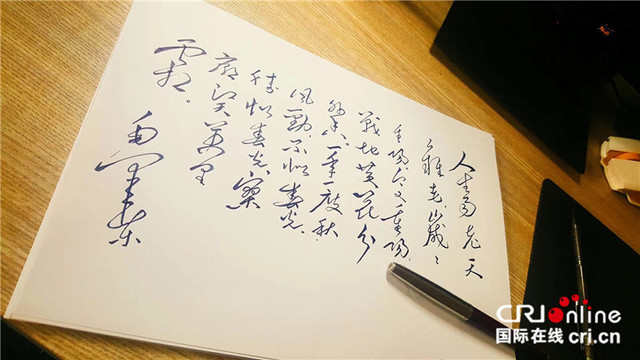 人生易老天
難老歲々
重陽今又重陽
戰地黄花分
外香一年一度秋
風勁不似春光
勝似春光寥
廓江天萬里
霜。
毛澤東
CRI online
国际在线 cri.cn